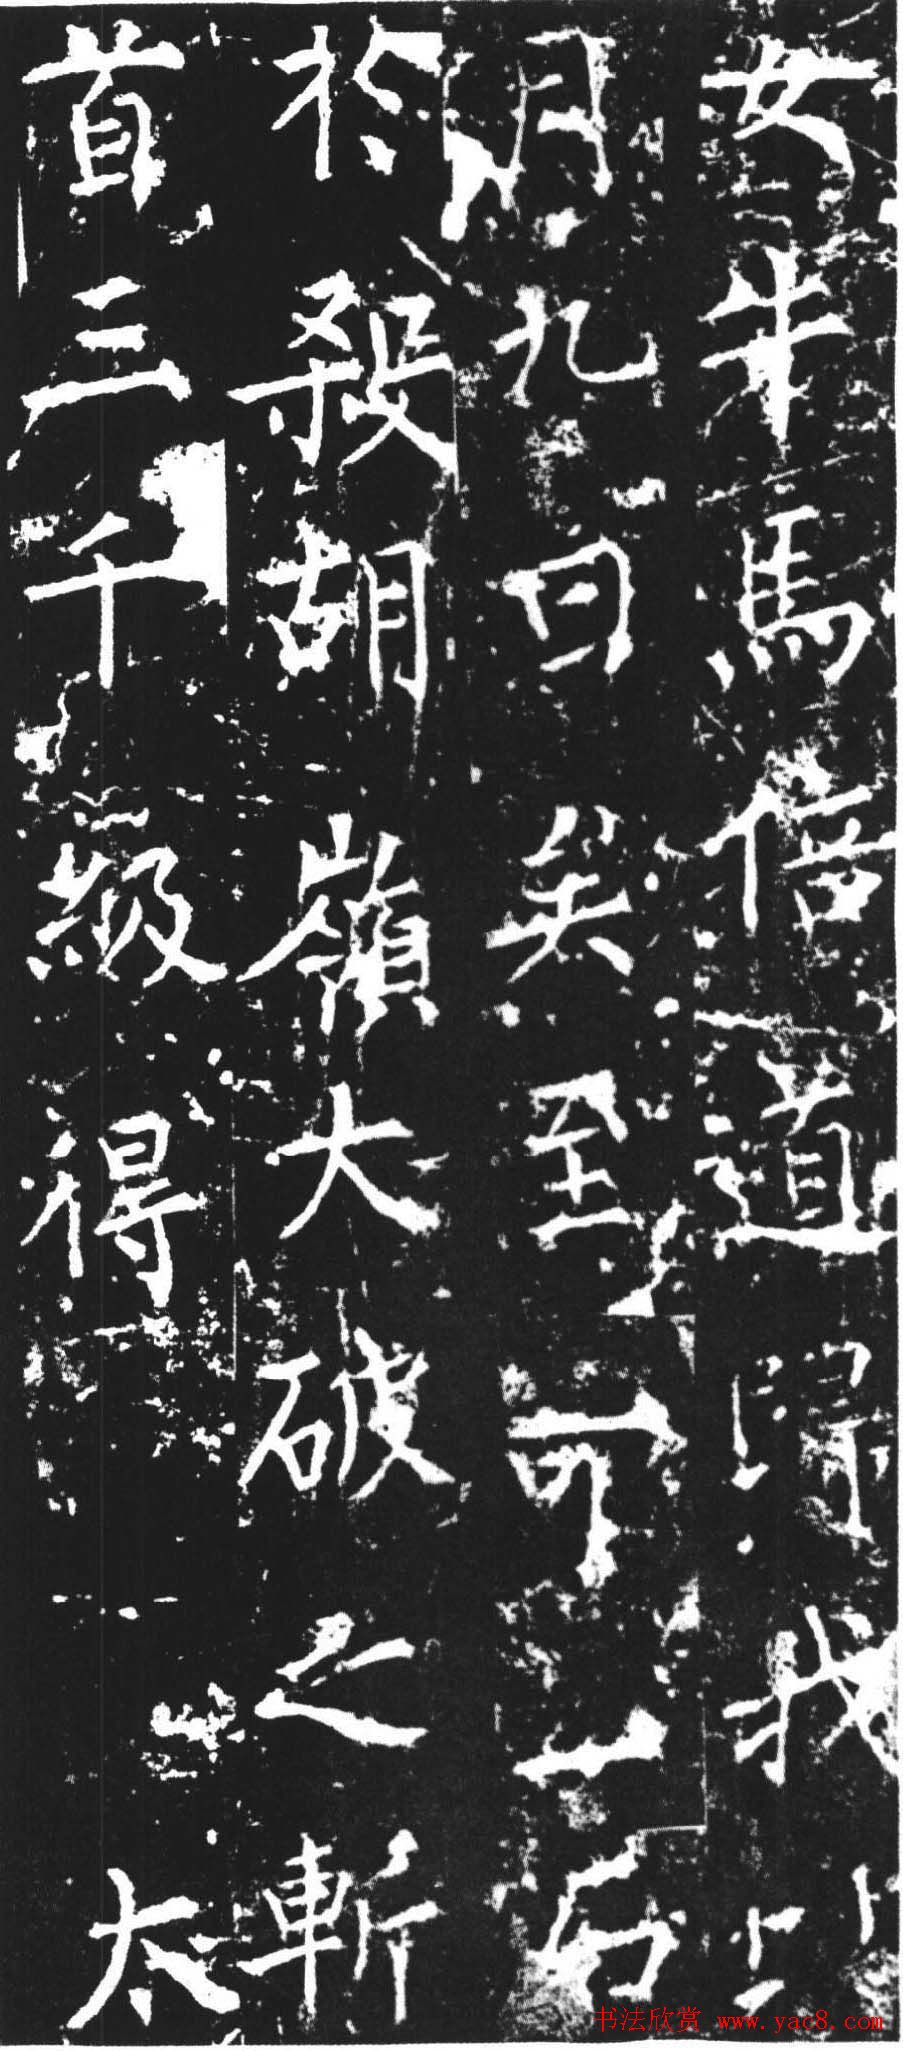 女牛馬倍道歸我
月九日矣至可
於殺胡嶺大破之斬
首三千級得太
书法欣赏 www.yac8.com